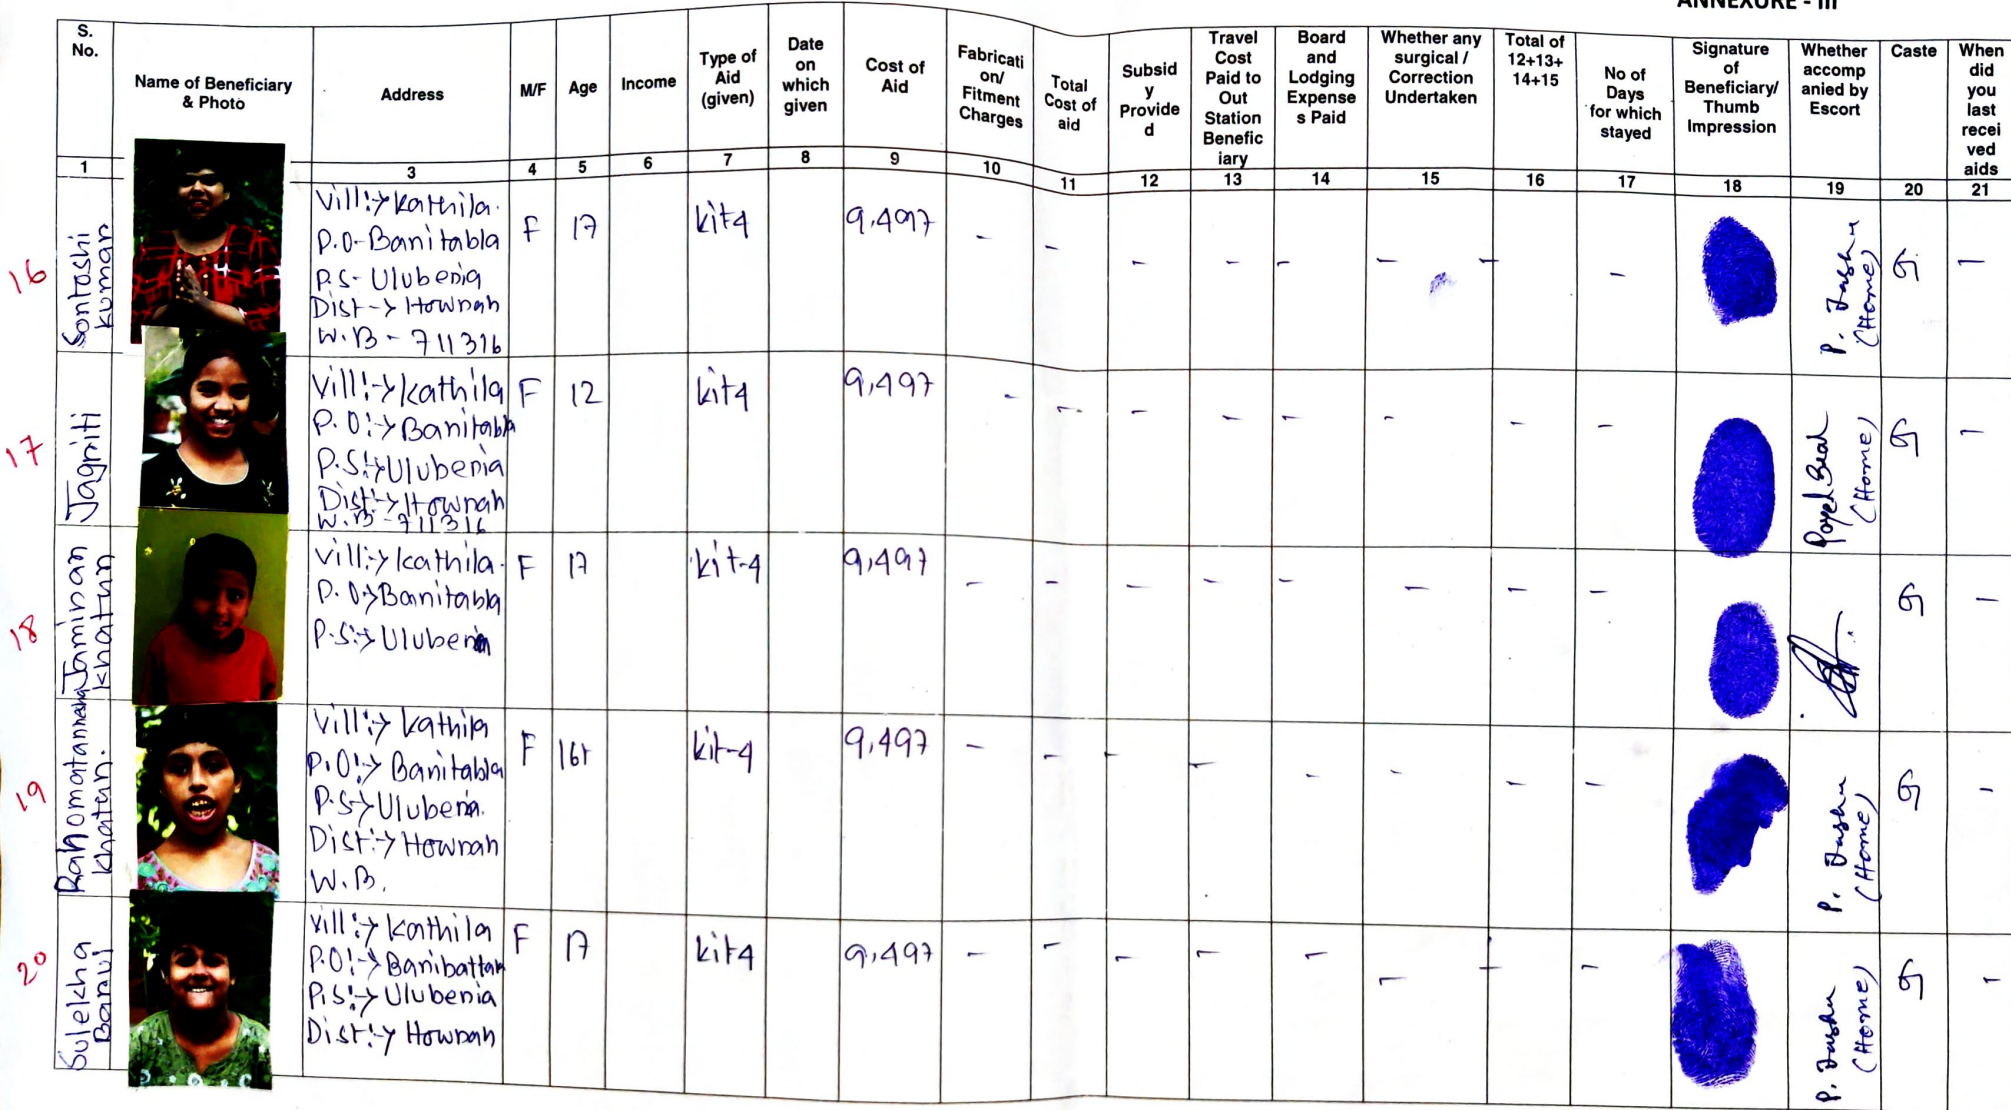 ANNEXURE - III
S. No.
Name of Beneficiary & Photo
Address
M/F
Age
Income
Type of Aid (given)
Date on which given
Cost of Aid
Fabricati on/ Fitment Charges
Total Cost of aid
Subsid y Provide d
Travel Cost Paid to Out Station Benefic iary
Board and Lodging Expense s Paid
Whether any surgical / Correction Undertaken
Total of 12+13+ 14+15
No of Days for which stayed
Signature of Beneficiary/ Thumb Impression
Whether accomp anied by Escort
Caste
When did you last recei ved aids
1 3 4 5 6 7 8 9 10 11 12 13 14 15 16 17 18 19 20 21
16
Sontoshi kumar
Vill:→ Kathila.
P.O- Banitabla
P.S- Uluberia
Dist → Howrah
W.B - 711316
F 17 kit4 9,497 - - - - - - - -
(Home)
G -
17
Jagriti
Vill:→ Kathila
P.O:→ Banitabla
P.S:→ Uluberia
Dist:→ Howrah
W.B - 711316
F 12 kit4 9,497 - - - - - - - -
(Home)
G -
18
Jaminan Khatun
Vill:→ Kathila.
P.O→ Banitabla
P.S:→ Uluberia
F 17 kit-4 9,497 - - - - - - - -
G -
19
Khatun.
Vill:→ Kathila
P.O:→ Banitabla
P.S→ Uluberia.
Dist:→ Howrah
W.B.
F kit-4 9,497 - - - - - - - -
(Home)
G -
20
Sulekha
Vill:→ Kathila
P.O:→
P.S:→ Uluberia
Dist:→ Howrah
F 17 kit4 9,497 - - - - - - - -
(Home)
G -